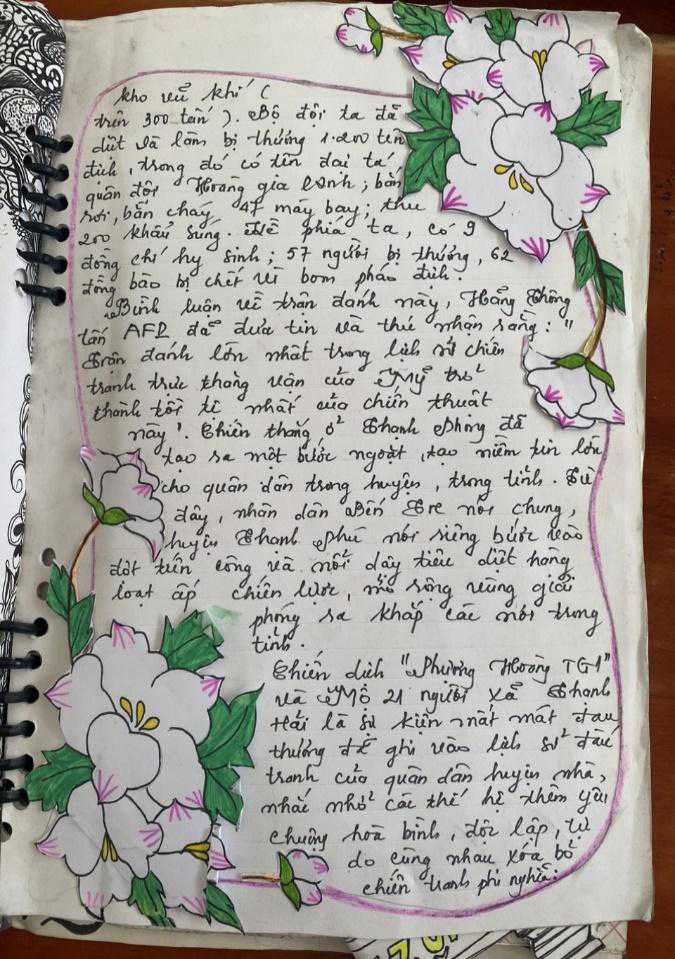 kho vũ khí (
trên 300 tấn). Bộ đội ta đã
diệt và làm bị thương 1.200 tên
địch, trong đó có tên đại tá
quân đội Hoàng gia Anh; bắn
rơi, bắn cháy 47 máy bay; thu
200 khẩu súng. Về phía ta, có 9
đồng chí hy sinh; 57 người bị thương, 62
đồng bào bị chết vì bom pháo địch.
Bình luận về trận đánh này, Hãng thông
tấn AFP đã đưa tin và thú nhận rằng: "
Trận đánh lớn nhất trong lịch sử chiến
tranh trực thăng vận của Mỹ trở
thành tồi tệ nhất của chiến thuật
này". Chiến thắng ở Thạnh Phong đã
tạo ra một bước ngoặt, tạo niềm tin lớn
cho quân dân trong huyện, trong tỉnh. Từ
đây, nhân dân Bến Tre nói chung,
huyện Thạnh Phú nói riêng bước vào
đợt tiến công và nổi dậy tiêu diệt hàng
loạt ấp chiến lược, mở rộng vùng giải
phóng ra khắp các nơi trong
tỉnh.
Chiến dịch "Phượng Hoàng TG1"
và Mộ 21 người xã Thạnh
Hải là sự kiện mất mát đau
thương để ghi vào lịch sử đấu
tranh của quân dân huyện nhà,
nhắc nhở các thế hệ thêm yêu
chuộng hoà bình, độc lập, tự
do cùng nhau xóa bỏ
chiến tranh phi nghĩa.